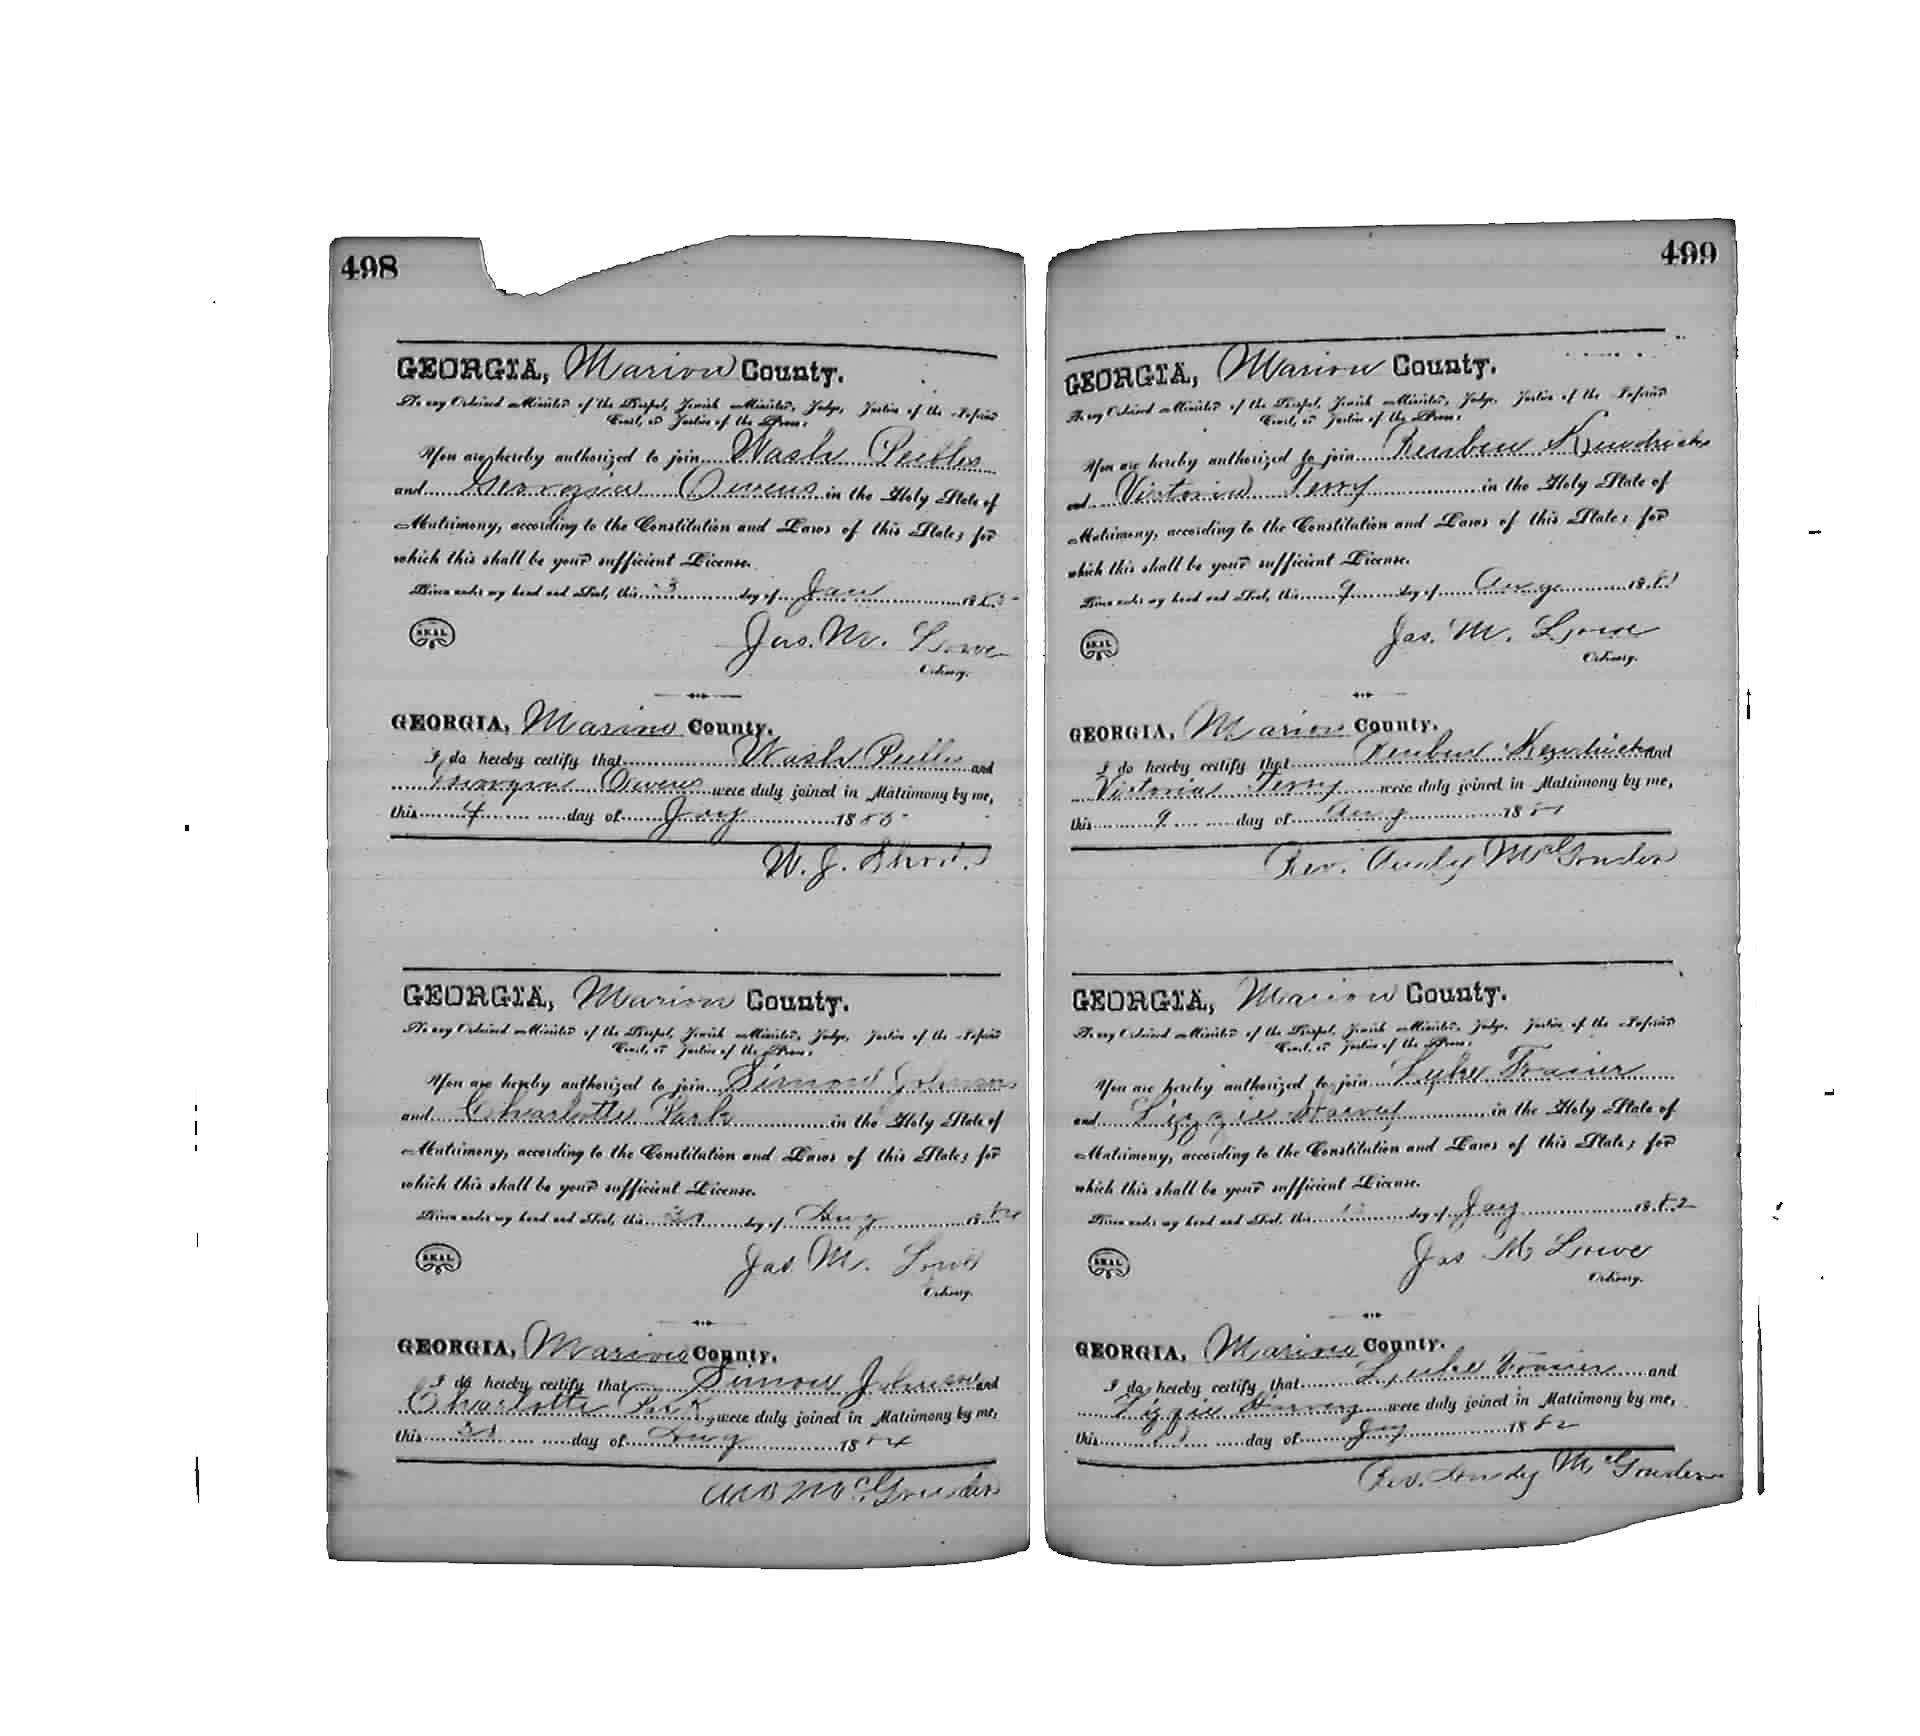 498
GEORGIA, Marion County.
To any Ordained Minister of the Gospel, Jewish Minister, Judge, Justice of the Inferior
Court, or Justice of the Peace:
You are hereby authorized to join Wash Peebles
and Georgia Owens in the Holy State of
Matrimony, according to the Constitution and Laws of this State; for
which this shall be your sufficient License.
Given under my hand and Seal, this 3 day of Jan 1885
SEAL
Jas. M. Lowe
Ordinary.
GEORGIA, Marion County.
I do hereby certify that Wash Peebles and
Georgia Owens were duly joined in Matrimony by me,
this 4 day of Jay 1885
W. J.
GEORGIA, Marion County.
To any Ordained Minister of the Gospel, Jewish Minister, Judge, Justice of the Inferior
Court, or Justice of the Peace:
You are hereby authorized to join Simon Johnson
and Charlotte Park in the Holy State of
Matrimony, according to the Constitution and Laws of this State; for
which this shall be your sufficient License.
Given under my hand and Seal, this 31 day of 1884
SEAL
Jas. M. Lowe
Ordinary.
GEORGIA, Marion County.
I do hereby certify that Simon Johnson and
Charlotte Park, were duly joined in Matrimony by me,
this 31 day of 1884
McGouder
499
GEORGIA, Marion County.
To any Ordained Minister of the Gospel, Jewish Minister, Judge, Justice of the Inferior
Court, or Justice of the Peace:
You are hereby authorized to join Reuben Kendricks
and Victoria Terry in the Holy State of
Matrimony, according to the Constitution and Laws of this State; for
which this shall be your sufficient License.
Given under my hand and Seal, this 9 day of Aug 1881
SEAL
Jas. M. Lowe
Ordinary.
GEORGIA, Marion County.
I do hereby certify that Reuben Kendricks and
Victoria Terry were duly joined in Matrimony by me,
this 9 day of Aug 1881
Rev. Andy McGouder
GEORGIA, Marion County.
To any Ordained Minister of the Gospel, Jewish Minister, Judge, Justice of the Inferior
Court, or Justice of the Peace:
You are hereby authorized to join Luke Frasier
and Lizzie Harvey in the Holy State of
Matrimony, according to the Constitution and Laws of this State; for
which this shall be your sufficient License.
Given under my hand and Seal, this day of Jay 1882
SEAL
Jas M Lowe
Ordinary.
GEORGIA, Marion County.
I do hereby certify that Luke Frasier and
Lizzie Harvey were duly joined in Matrimony by me,
this day of Jay 1882
Rev. Andy McGouder